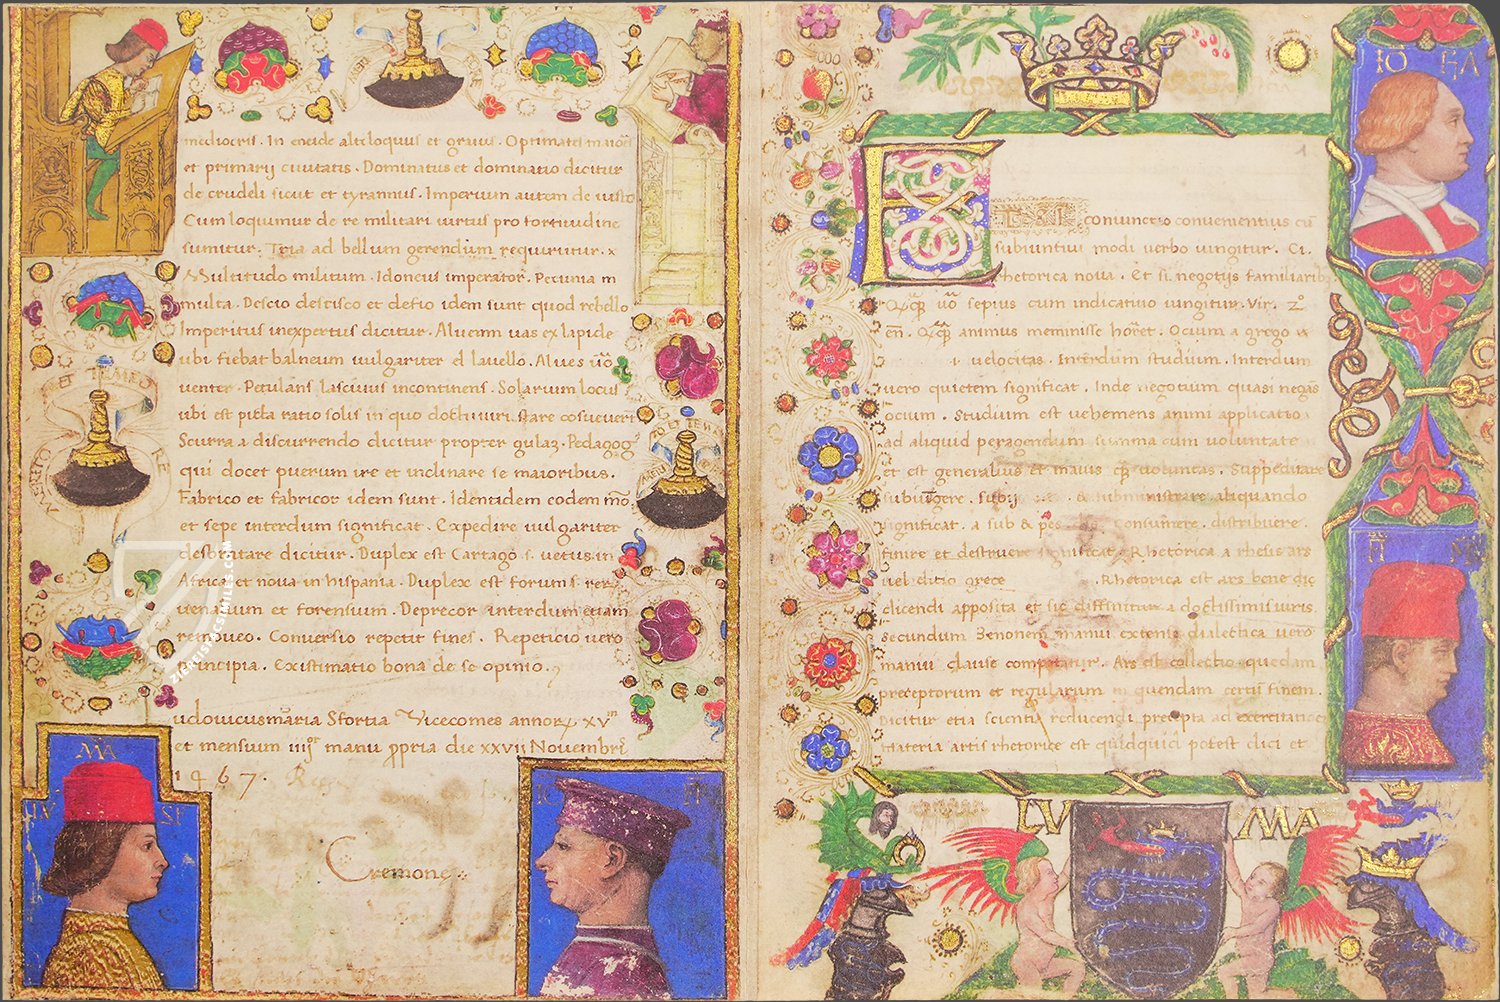 mediocris. In eneide altiloquus et gravis. Optimates maiores
et primarij civitatis. Dominatus et dominatio dicitur
de crudeli sicut et tyrannus. Imperium autem de iusto
Cum loquimur de re militari virtus pro fortitudine
sumitur. Tria ad bellum gerendium requiruntur. x
Multitudo militum. Idoneus imperator. Pecunia m
multa. Descio descisco et defio idem sunt quod rebello
Imperitus inexpertus dicitur. Alveum vas ex lapide
ubi fiebat balneum vulgariter el lavello. Alves
venter. Petulans lascivus incontinens. Solarium locus
ubi est picta ratio solis in quo docti viri stare cosueverunt
Scurra a discurrendo dicitur propter gulaz. Pedagog
qui docet puerum ire et inclinare se maioribus.
Fabrico et fabricor idem sunt. Identidem eodem mo
et sepe interdum significat. Expedire vulgariter
desbratare dicitur. Duplex est Cartago s. vetus in
Africa et nova in hispania. Duplex est forum s. rer
venalium et forensium. Deprecor interdum etiam
removeo. Conversio repetit fines. Repeticio vero
principia. Existimatio bona de se opinio.
udovicusmaria Sfortia Vicecomes annorx xv
et mensium iiij manu ppria die xxvij Novembris
1467.
Cremone
MA
SF
IO
ET SI
convinctio convenientius cu
subiuntivi modi verbo iungitur. Ci.
rhetorica nova. Et si negotijs familiarib
sepius cum indicativo iungitur. Vir. 2o
en. animus meminisse horret. Ocium a greco
velocitas. Interdum studium. Interdum
vero quietem significat. Inde negotium quasi negas
ocium. Studium est vehemens animi applicatio
ad aliquid peragendum summa cum voluntate
et est generalius et maius voluntas. Suppeditare
subiugere. subministrare aliquando
significat. a sub & pes Consumere. distribuere.
finire et destruere significat. Rhetorica a rhesis ars
vel ditio grece Rhetorica est ars bene dic
dicendi apposita et sic diffinitur a doctissimis viris.
Secundum Zenonem manui extense dialethica vero
manui clause comparatur. Ars est collectio quedam
preceptorum et regularum in quendam certum finem.
Dicitur etia scientia reducendi precepta ad exercitationem
Materia artis rhetorice est quidquid potest dici et
IO HA
LV MA
ZIEREISFACSIMILES.COM